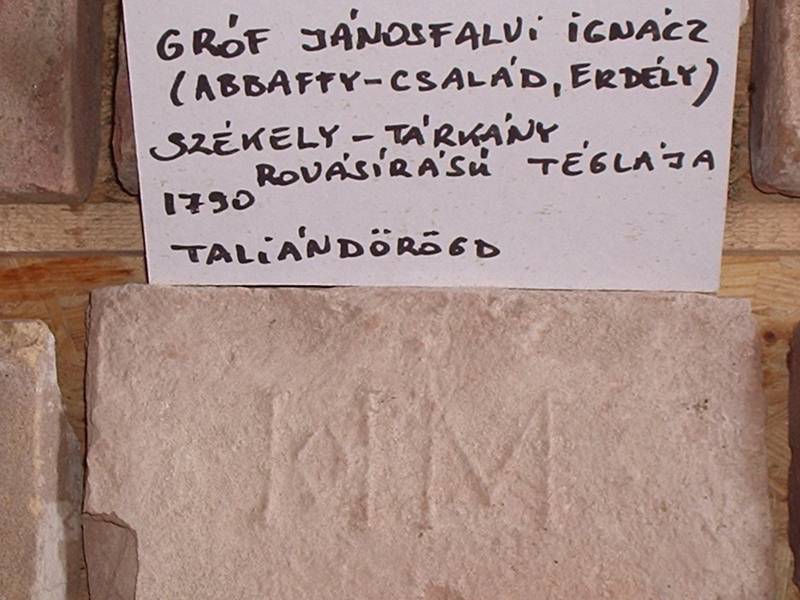 GRÓF JÁNOSFALVI IGNÁCZ
(ABBAFFY-CSALÁD, ERDÉLY)
SZÉKELY-TÁRKÁNY
ROVÁSÍRÁSÚ TÉGLÁJA
1790
TALIÁNDÖRÖGD